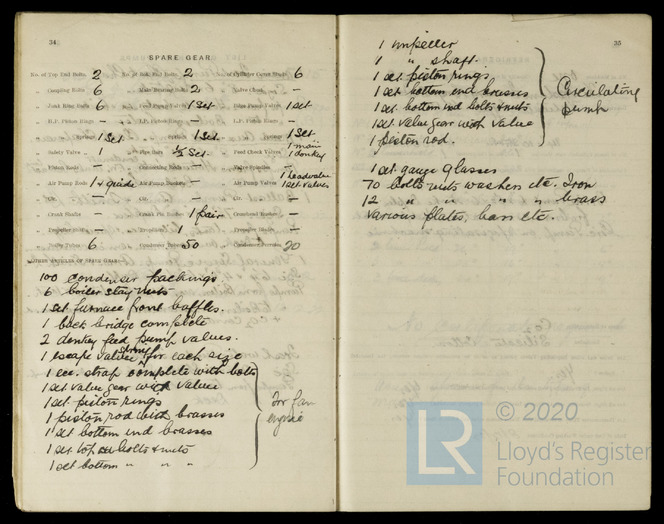 34
SPARE GEAR
No. of Top End Bolts 2 No. of Bot. End Bolts 2 No. of Cylinder Cover Studs 6
„ Coupling Bolts 6 „ Main Bearing Bolts 2 „ Valve Chest „ —
„ Junk Ring Bolts 6 „ Feed Pump Valves 1 Set „ Bilge Pump Valves 1 set
„ H.P. Piston Rings — „ I.P. Piston Rings — „ L.P. Piston Rings —
„ „ Springs 1 Set „ „ Springs 1 Set „ „ Springs 1 Set
„ Safety Valve „ — „ Fire Bars ½ Set „ Feed Check Valves 1 main 1 donkey
„ Piston Rods — „ Connecting Rods — „ Valve Spindles —
„ Air Pump Rods 1 & guide „ Air Pump Buckets — „ Air Pump Valves 1 headvalve 1 set valves
„ Cir. „ — „ Cir. „ — „ Cir. „ —
„ Crank Shafts — „ Crank Pin Bushes 1 pair „ Crosshead Bushes —
„ Propeller Shafts — „ Propellers 1 „ Propeller Blades —
„ Boiler Tubes 6 „ Condenser Tubes 50 „ Condenser Ferrules 20
OTHER ARTICLES OF SPARE GEAR:—
100 condenser packings
6 boiler stay nuts
1 set furnace front baffles.
1 back bridge complete
2 donkey feed pump valves.
1 escape valve spring for each size
1 ecc. strap complete with bolts
1 set valve gear with valve
1 set piston rings
1 piston rod with brasses
1 set bottom end brasses
1 set top end bolts & nuts
1 set bottom „ „ „
for fan engine
35
1 impeller
1 „ shaft.
1 set piston rings
1 set bottom end brasses
1 set bottom end bolts & nuts
1 set valve gear with valve
1 piston rod.
Circulating pump
1 set gauge glasses
70 bolts nuts washers etc. Iron
12 „ „ „ „ brass
Various plates, bars etc.
LR
© 2020
Lloyd's Register
Foundation